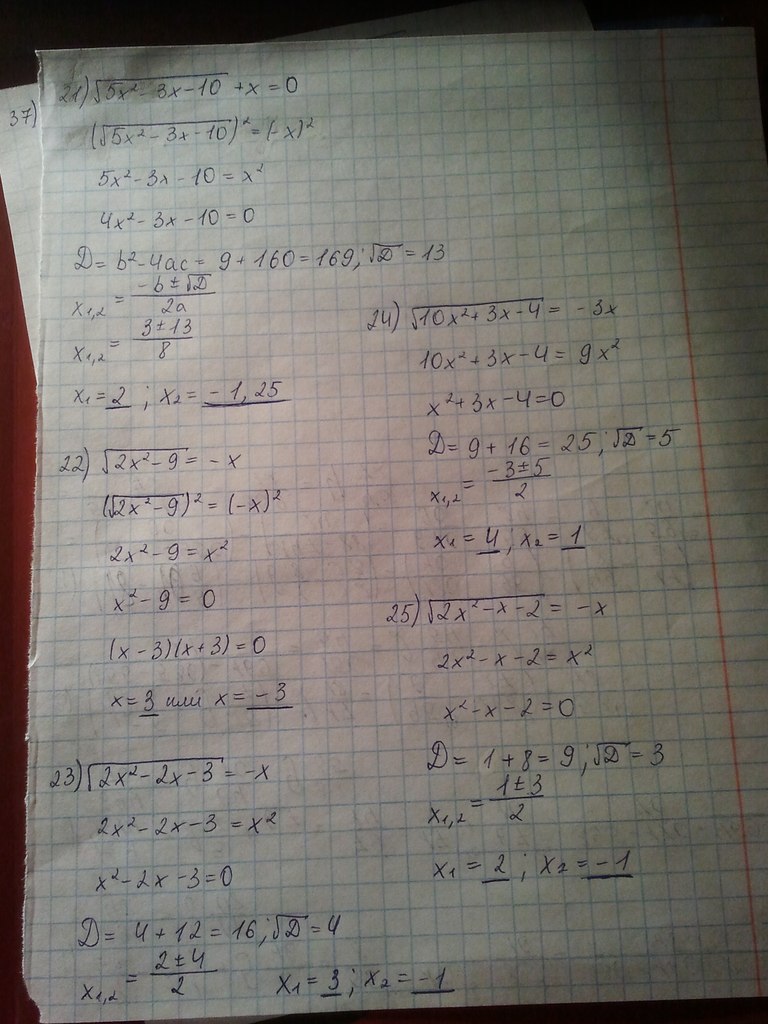 37)
21) √(5x² - 3x - 10) + x = 0
(√(5x² - 3x - 10))² = (-x)²
5x² - 3x - 10 = x²
4x² - 3x - 10 = 0
D = b² - 4ac = 9 + 160 = 169; √D = 13
x₁,₂ = (-b ± √D)/(2a)
x₁,₂ = (3 ± 13)/8
x₁ = 2 ; x₂ = -1,25
22) √(2x² - 9) = -x
(√(2x² - 9))² = (-x)²
2x² - 9 = x²
x² - 9 = 0
(x - 3)(x + 3) = 0
x = 3 или x = -3
23) √(2x² - 2x - 3) = -x
2x² - 2x - 3 = x²
x² - 2x - 3 = 0
D = 4 + 12 = 16; √D = 4
x₁,₂ = (2 ± 4)/2 x₁ = 3; x₂ = -1
24) √(10x² + 3x - 4) = -3x
10x² + 3x - 4 = 9x²
x² + 3x - 4 = 0
D = 9 + 16 = 25; √D = 5
x₁,₂ = (-3 ± 5)/2
x₁ = 4; x₂ = 1
25) √(2x² - x - 2) = -x
2x² - x - 2 = x²
x² - x - 2 = 0
D = 1 + 8 = 9; √D = 3
x₁,₂ = (1 ± 3)/2
x₁ = 2; x₂ = -1